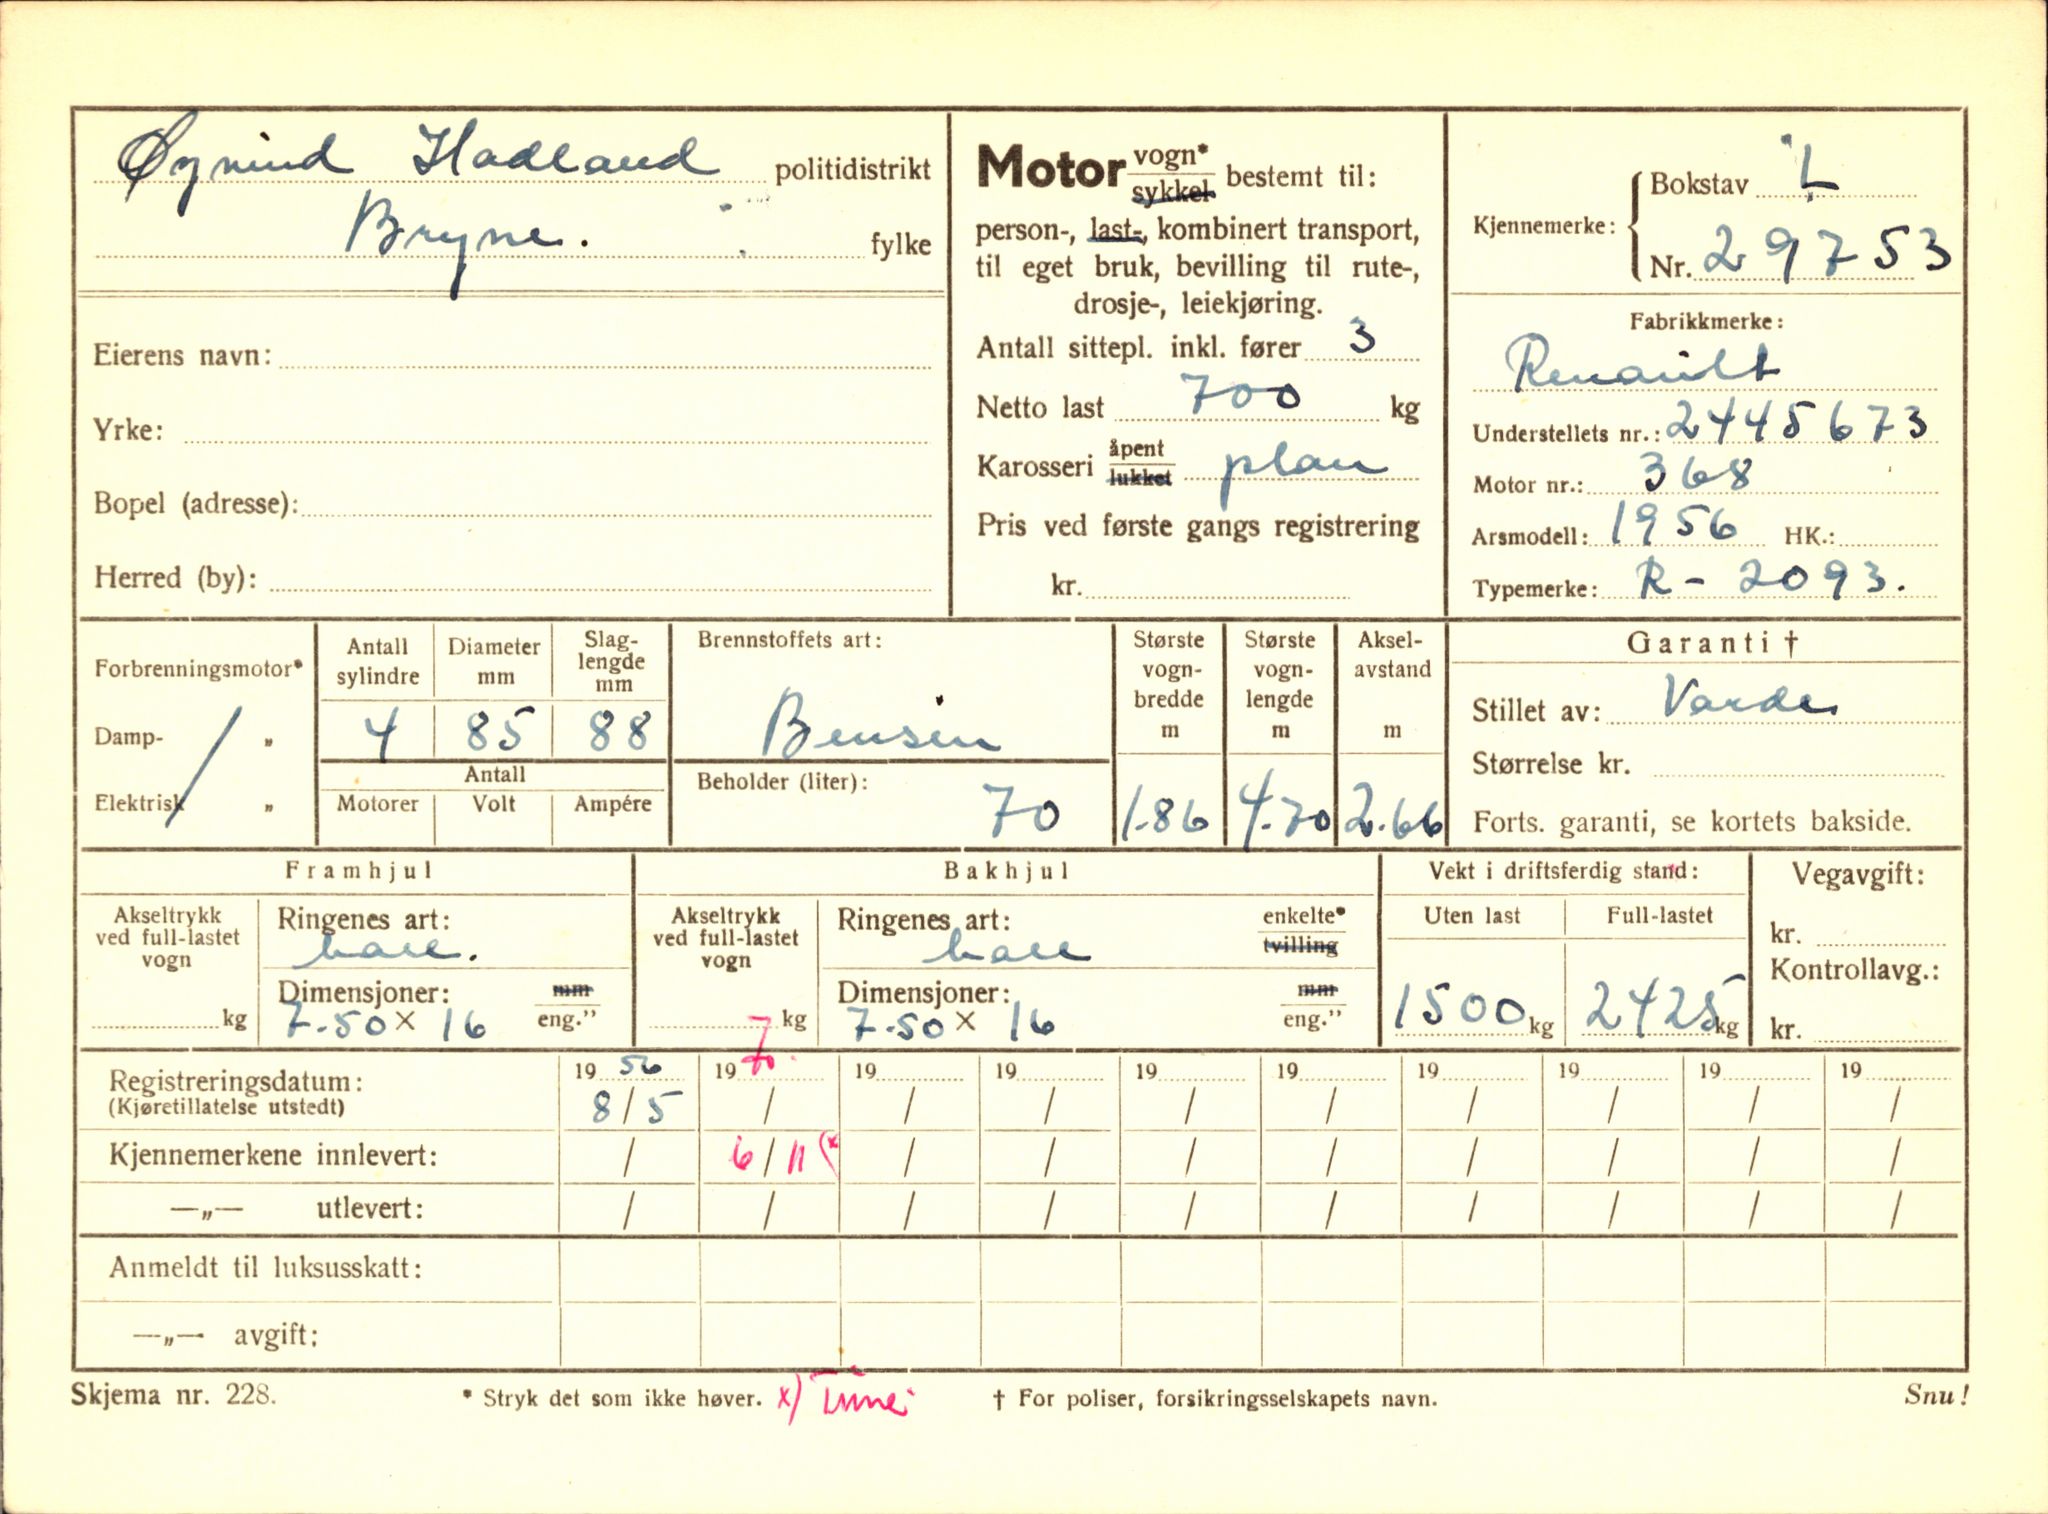 Øyvind Hadland politidistrikt
Bryne. fylke
Eierens navn:
Yrke:
Bopel (adresse):
Herred (by):
Motor vogn* sykkel bestemt til:
person-, last-, kombinert transport,
til eget bruk, bevilling til rute-,
drosje-, leiekjøring.
Antall sittepl. inkl. fører 3
Netto last 700 kg
Karosseri åpent lukket plan
Pris ved første gangs registrering
kr.
Kjennemerke: Bokstav L
Nr. 29753
Fabrikkmerke:
Renault
Understellets nr.: 2445673
Motor nr.: 368
Arsmodell: 1956 HK.:
Typemerke: R-2093.
Forbrenningsmotor*
Damp- „
Elektrisk „
Antall sylindre
Diameter mm
Slag-lengde mm
4 85 88
Antall
Motorer Volt Ampére
Brennstoffets art:
Bensin
Beholder (liter):
70
Største vogn-bredde m
1.86
Største vogn-lengde m
4.70
Aksel-avstand m
2.66
Garanti †
Stillet av: Varde
Størrelse kr.
Forts. garanti, se kortets bakside.
Framhjul
Akseltrykk ved full-lastet vogn
kg
Ringenes art:
Dimensjoner: mm
7.50 x 16 eng.”
Bakhjul
Akseltrykk ved full-lastet vogn
kg
Ringenes art: enkelte*
tvilling
Dimensjoner: mm
7.50 x 16 eng.”
Vekt i driftsferdig stand:
Uten last Full-lastet
1500 kg 2425 kg
Vegavgift:
kr.
Kontrollavg.:
kr.
Registreringsdatum: 19 56 19 70. 19 19 19 19 19 19 19 19
(Kjøretillatelse utstedt) 8/5 / / / / / / / / /
Kjennemerkene innlevert: / 6/11 (x / / / / / / / /
—„— utlevert: / / / / / / / / / /
Anmeldt til luksusskatt:
—„— avgift:
Skjema nr. 228. * Stryk det som ikke høver. x) † For poliser, forsikringsselskapets navn. Snu!